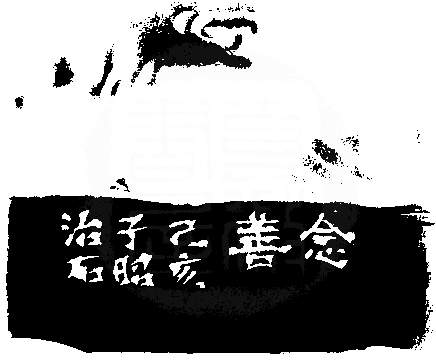 念善
己亥
子昭
治石